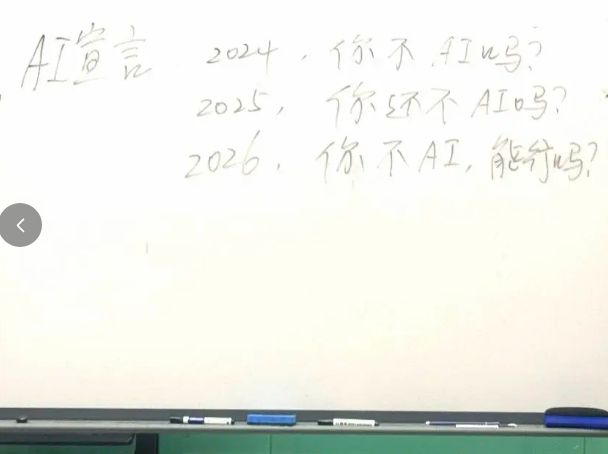 AI宣言 2024，你不AI吗？
2025，你还不AI吗？
2026，你不AI，能行吗？